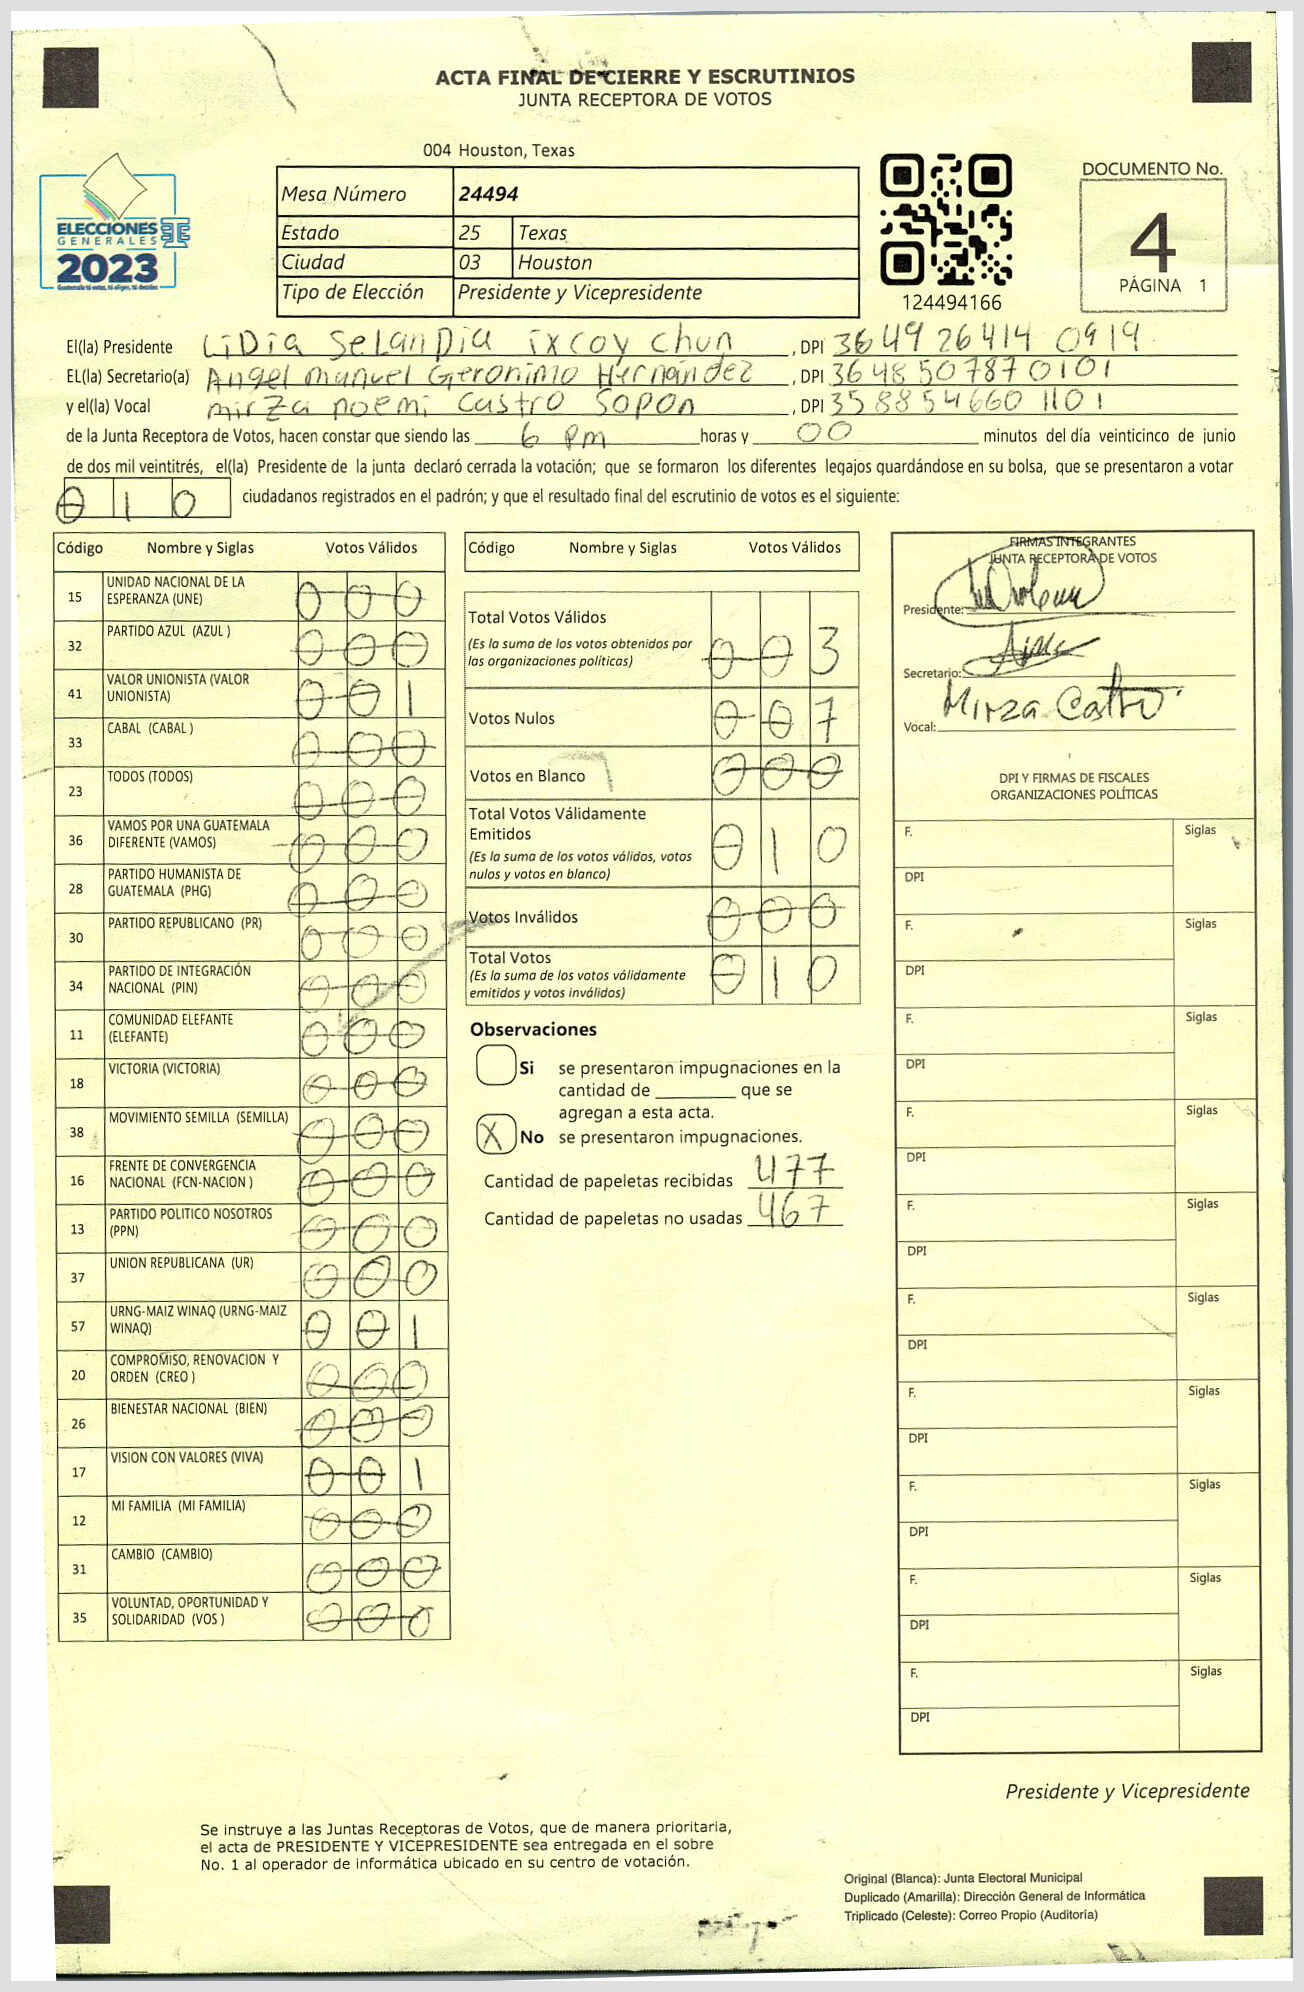 ACTA FINAL DE CIERRE Y ESCRUTINIOS
JUNTA RECEPTORA DE VOTOS
004 Houston, Texas
ELECCIONES
GENERALES
2023
Mesa Número 24494
Estado 25 Texas
Ciudad 03 Houston
Tipo de Elección Presidente y Vicepresidente
124494166
DOCUMENTO No.
4
PÁGINA 1
El(la) Presidente LiDia SeLanDia ixcoy chun, DPI 3649 26414 0919
EL(la) Secretario(a) Angel manuel Geronimo Hernández, DPI 3648507870101
y el(la) Vocal mirza noemi Castro Sopon, DPI 358854660 1101
de la Junta Receptora de Votos, hacen constar que siendo las 6 pm horas y 00 minutos del día veinticinco de junio
de dos mil veintitrés, el(la) Presidente de la junta declaró cerrada la votación; que se formaron los diferentes legajos guardándose en su bolsa, que se presentaron a votar
010 ciudadanos registrados en el padrón; y que el resultado final del escrutinio de votos es el siguiente:
Código Nombre y Siglas Votos Válidos
15 UNIDAD NACIONAL DE LA ESPERANZA (UNE) 000
32 PARTIDO AZUL (AZUL ) 000
41 VALOR UNIONISTA (VALOR UNIONISTA) 001
33 CABAL (CABAL ) 000
23 TODOS (TODOS) 000
36 VAMOS POR UNA GUATEMALA DIFERENTE (VAMOS) 000
28 PARTIDO HUMANISTA DE GUATEMALA (PHG) 000
30 PARTIDO REPUBLICANO (PR) 000
34 PARTIDO DE INTEGRACIÓN NACIONAL (PIN) 000
11 COMUNIDAD ELEFANTE (ELEFANTE) 000
18 VICTORIA (VICTORIA) 000
38 MOVIMIENTO SEMILLA (SEMILLA) 000
16 FRENTE DE CONVERGENCIA NACIONAL (FCN-NACION ) 000
13 PARTIDO POLITICO NOSOTROS (PPN) 000
37 UNION REPUBLICANA (UR) 000
57 URNG-MAIZ WINAQ (URNG-MAIZ WINAQ) 001
20 COMPROMISO, RENOVACION Y ORDEN (CREO ) 000
26 BIENESTAR NACIONAL (BIEN) 000
17 VISION CON VALORES (VIVA) 001
12 MI FAMILIA (MI FAMILIA) 000
31 CAMBIO (CAMBIO) 000
35 VOLUNTAD, OPORTUNIDAD Y SOLIDARIDAD (VOS ) 000
Código Nombre y Siglas Votos Válidos
Total Votos Válidos 003
(Es la suma de los votos obtenidos por
las organizaciones políticas)
Votos Nulos 007
Votos en Blanco 000
Total Votos Válidamente
Emitidos 010
(Es la suma de los votos válidos, votos
nulos y votos en blanco)
Votos Inválidos 000
Total Votos 010
(Es la suma de los votos válidamente
emitidos y votos inválidos)
Observaciones
Si se presentaron impugnaciones en la
cantidad de ________ que se
agregan a esta acta.
X No se presentaron impugnaciones.
Cantidad de papeletas recibidas 477
Cantidad de papeletas no usadas 467
FIRMAS INTEGRANTES
JUNTA RECEPTORA DE VOTOS
Presidente:
Secretario:
Vocal: Mirza Castro
DPI Y FIRMAS DE FISCALES
ORGANIZACIONES POLÍTICAS
F. Siglas
DPI
F. Siglas
DPI
F. Siglas
DPI
F. Siglas
DPI
F. Siglas
DPI
F. Siglas
DPI
F. Siglas
DPI
F. Siglas
DPI
F. Siglas
DPI
F. Siglas
DPI
Presidente y Vicepresidente
Se instruye a las Juntas Receptoras de Votos, que de manera prioritaria,
el acta de PRESIDENTE Y VICEPRESIDENTE sea entregada en el sobre
No. 1 al operador de informática ubicado en su centro de votación.
Original (Blanca): Junta Electoral Municipal
Duplicado (Amarilla): Dirección General de Informática
Triplicado (Celeste): Correo Propio (Auditoría)